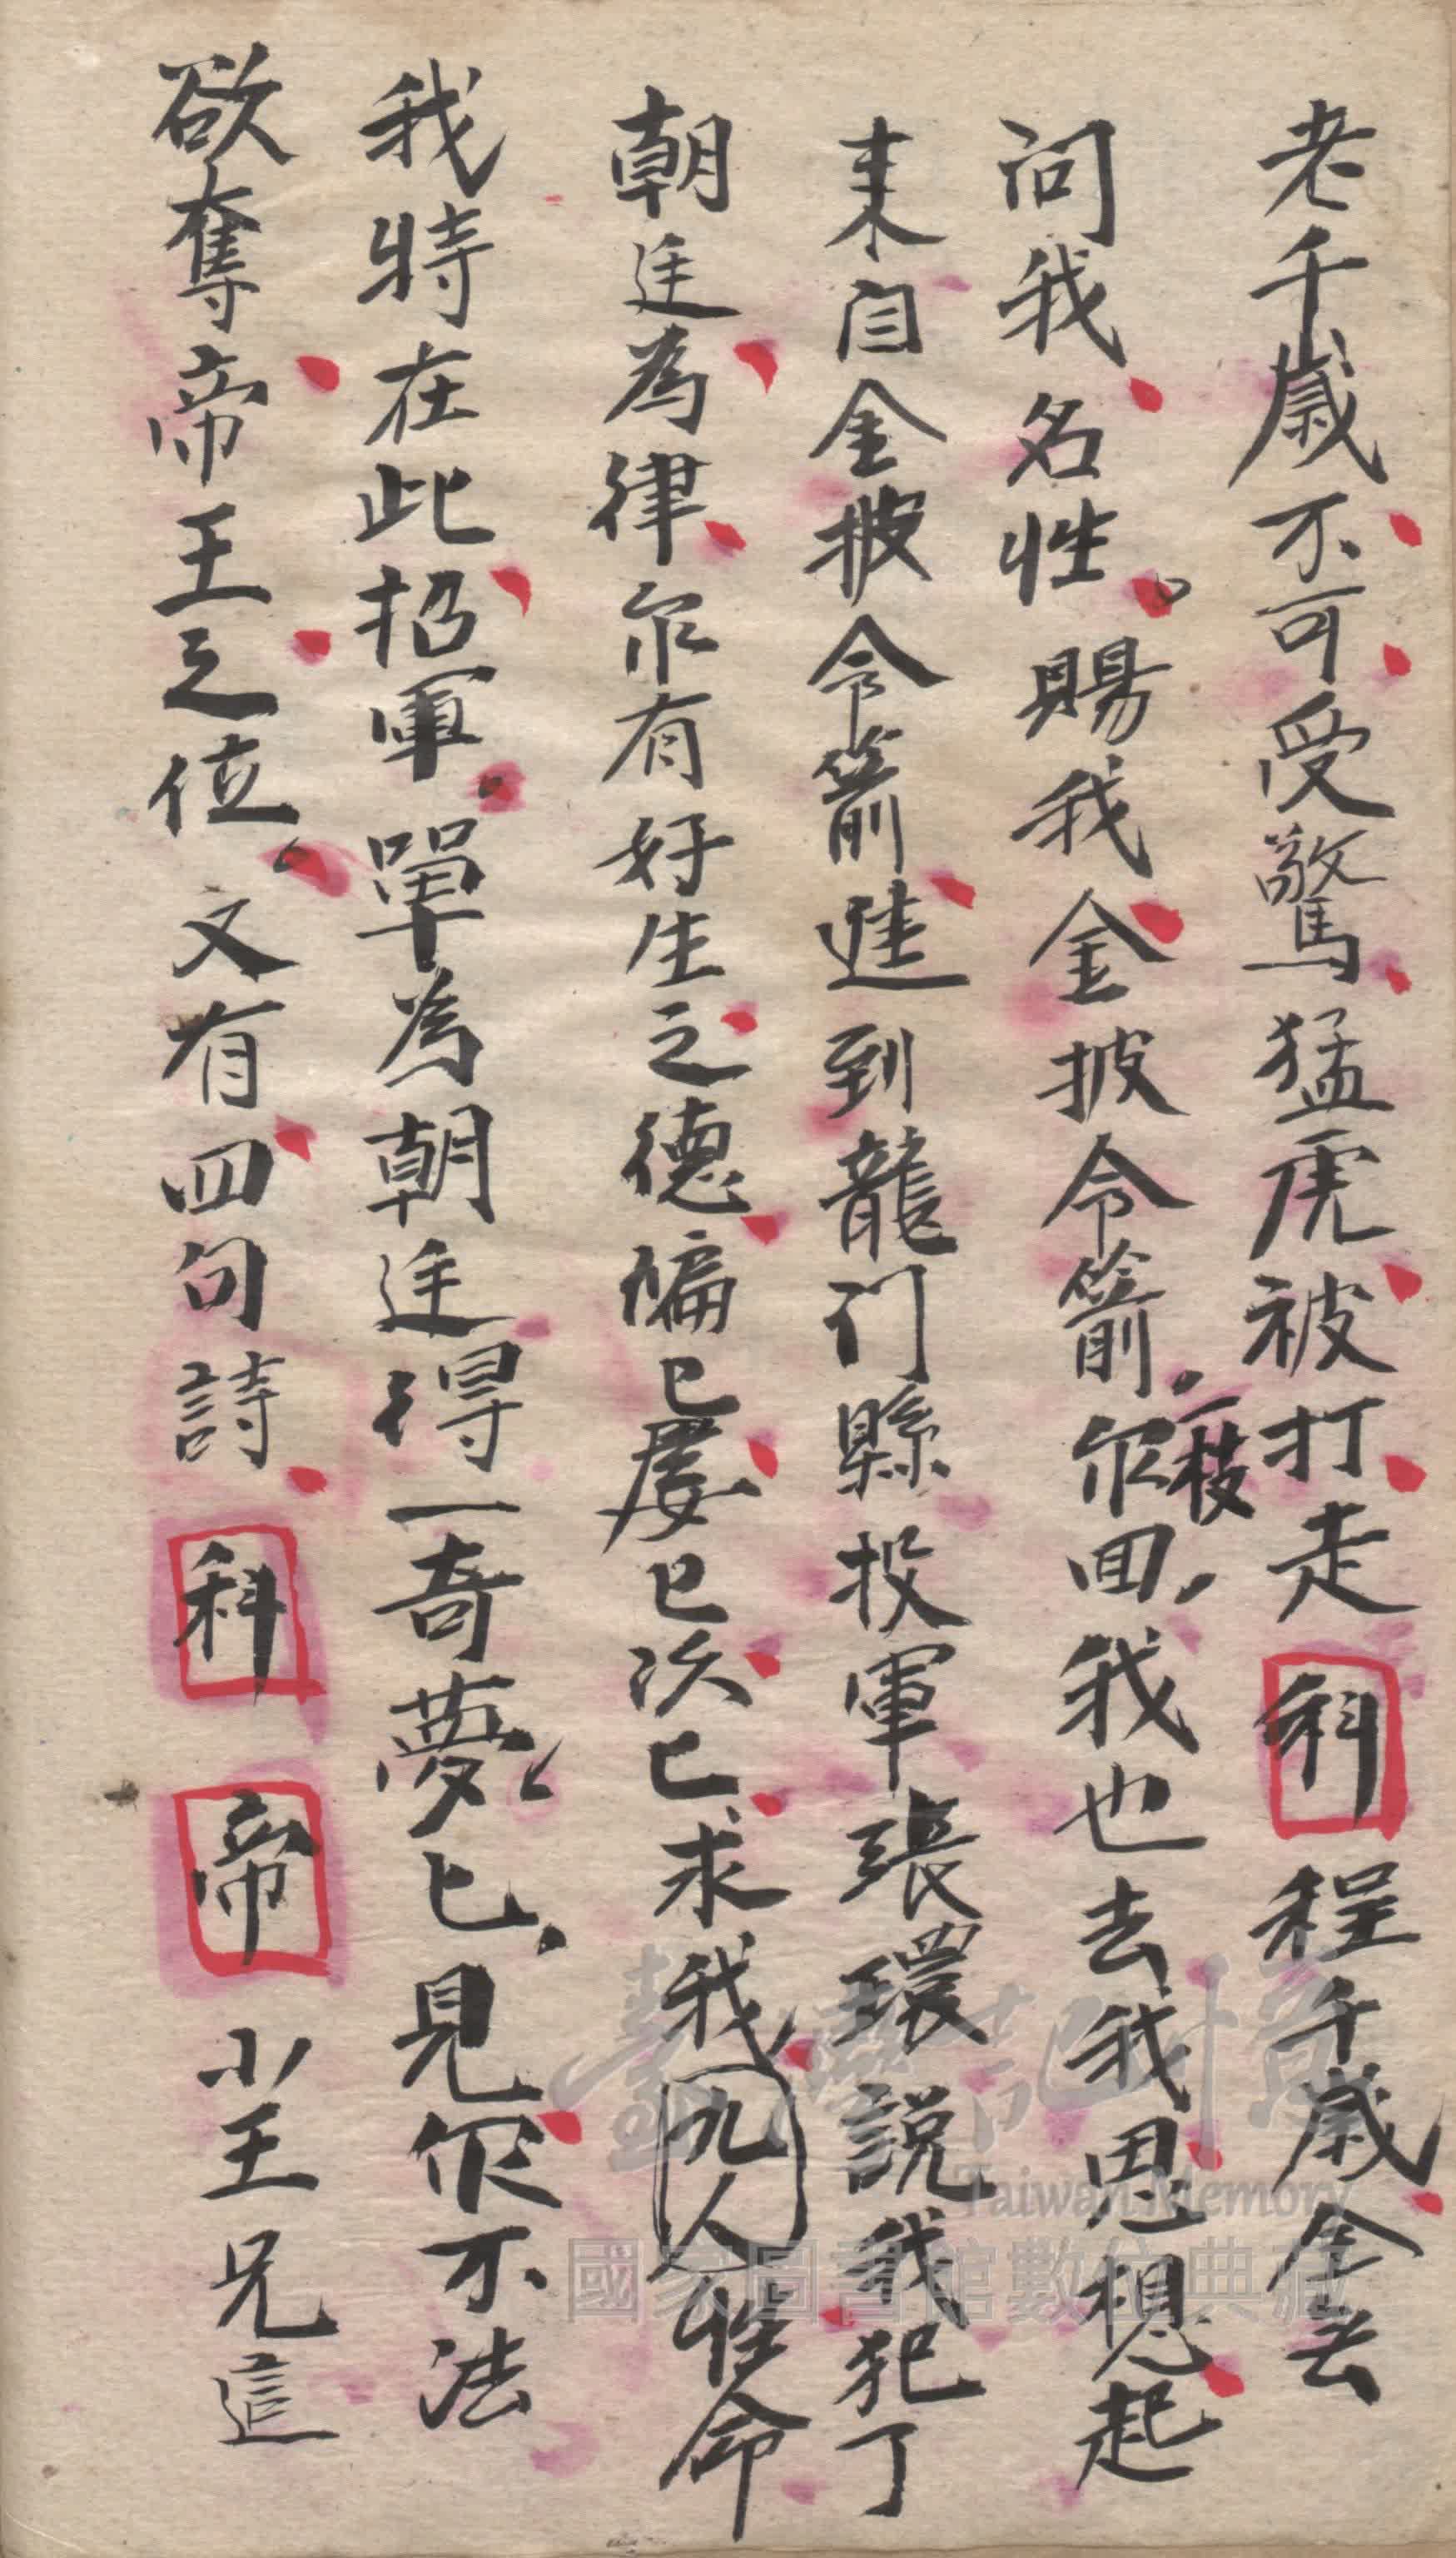 老千歲不可受驚猛虎被打走科程千歲全去
问我名性。賜我金披令箭一枝尔回我也去我思想起
来自金披令箭進到龍门縣投軍張環説我犯了
朝廷為律尔有好生之德騙已屡已次已求我九人性命
我特在此招軍。單為朝廷得一奇夢已見伱不法
欲奪帝王之位。又有四句詩科帝小王兄這
臺灣記憶
Taiwan Memory
國家圖書館數位典藏